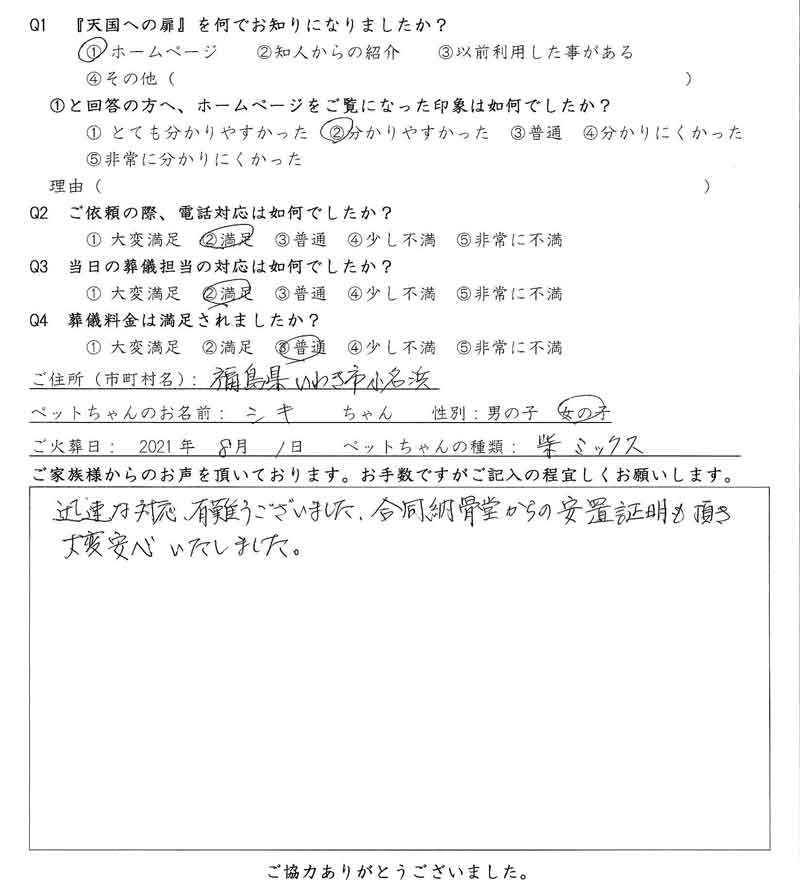 Q1 『天国への扉』を何でお知りになりましたか？
①ホームページ ②知人からの紹介 ③以前利用した事がある
④その他（ ）
①と回答の方へ、ホームページをご覧になった印象は如何でしたか？
① とても分かりやすかった ②分かりやすかった ③普通 ④分かりにくかった
⑤非常に分かりにくかった
理由（ ）
Q2 ご依頼の際、電話対応は如何でしたか？
① 大変満足 ②満足 ③普通 ④少し不満 ⑤非常に不満
Q3 当日の葬儀担当の対応は如何でしたか？
① 大変満足 ②満足 ③普通 ④少し不満 ⑤非常に不満
Q4 葬儀料金は満足されましたか？
① 大変満足 ②満足 ③普通 ④少し不満 ⑤非常に不満
ご住所（市町村名）：福島県いわき市小名浜
ペットちゃんのお名前： シキ ちゃん 性別：男の子 女の子
ご火葬日： 2021年 8月 1日 ペットちゃんの種類： 柴ミックス
ご家族様からのお声を頂いております。お手数ですがご記入の程宜しくお願いします。
迅速な対応、有難うございました、合同納骨堂からの安置証明も頂き
大変安心いたしました。
ご協力ありがとうございました。